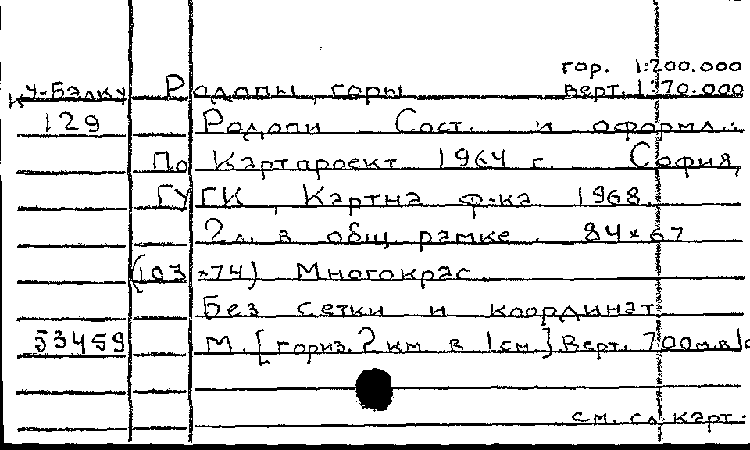 гор. 1:200.000
У-Балку Родопы, горы верт. 1:170.000
129 Родопи Сост. и оформл.
по Картпроект 1964 г. София,
ГУГК, Картна ф-ка 1968.
2 л. в общ. рамке. 84×67
(103×74) Многокрас.
Без сетки и координат
53459 М. [гориз. 2 км в 1 см.] Верт. 700 м.в
см. сл. карт.